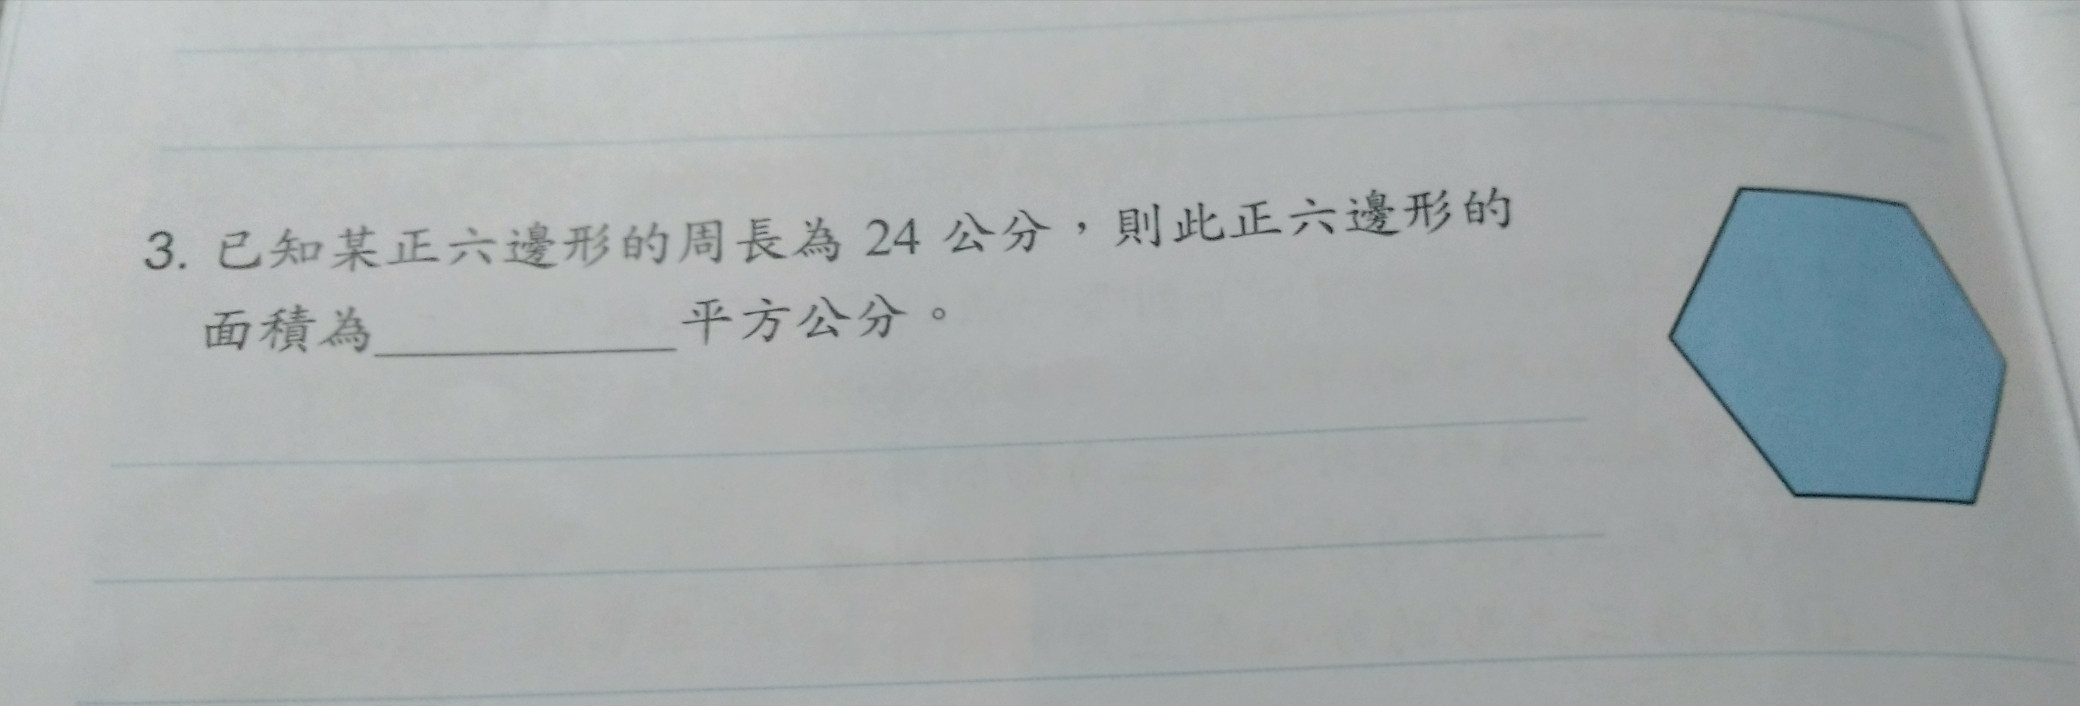 3. 已知某正六邊形的周長為 24 公分，則此正六邊形的
面積為__________平方公分。